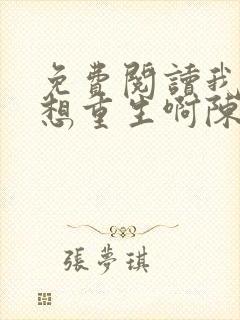 免費閱讀我
想重生啊陳
張夢琪